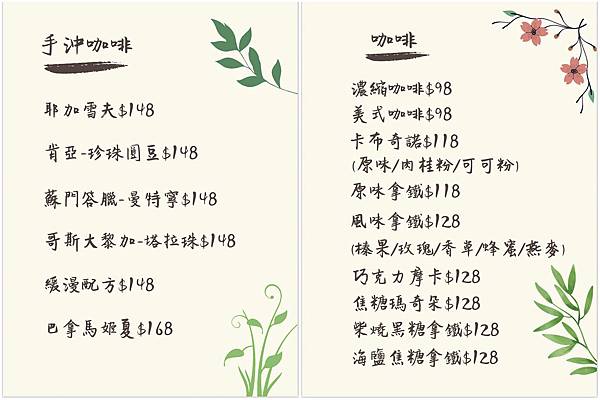 手沖咖啡
耶加雪夫$148
肯亞-珍珠圓豆$148
蘇門答臘-曼特寧$148
哥斯大黎加-塔拉珠$148
緩漫配方$148
巴拿馬姬夏$168
咖啡
濃縮咖啡$98
美式咖啡$98
卡布奇諾$118
(原味/肉桂粉/可可粉)
原味拿鐵$118
風味拿鐵$128
(榛果/玫瑰/香草/蜂蜜/燕麥)
巧克力摩卡$128
焦糖瑪奇朵$128
柴燒黑糖拿鐵$128
海鹽焦糖拿鐵$128